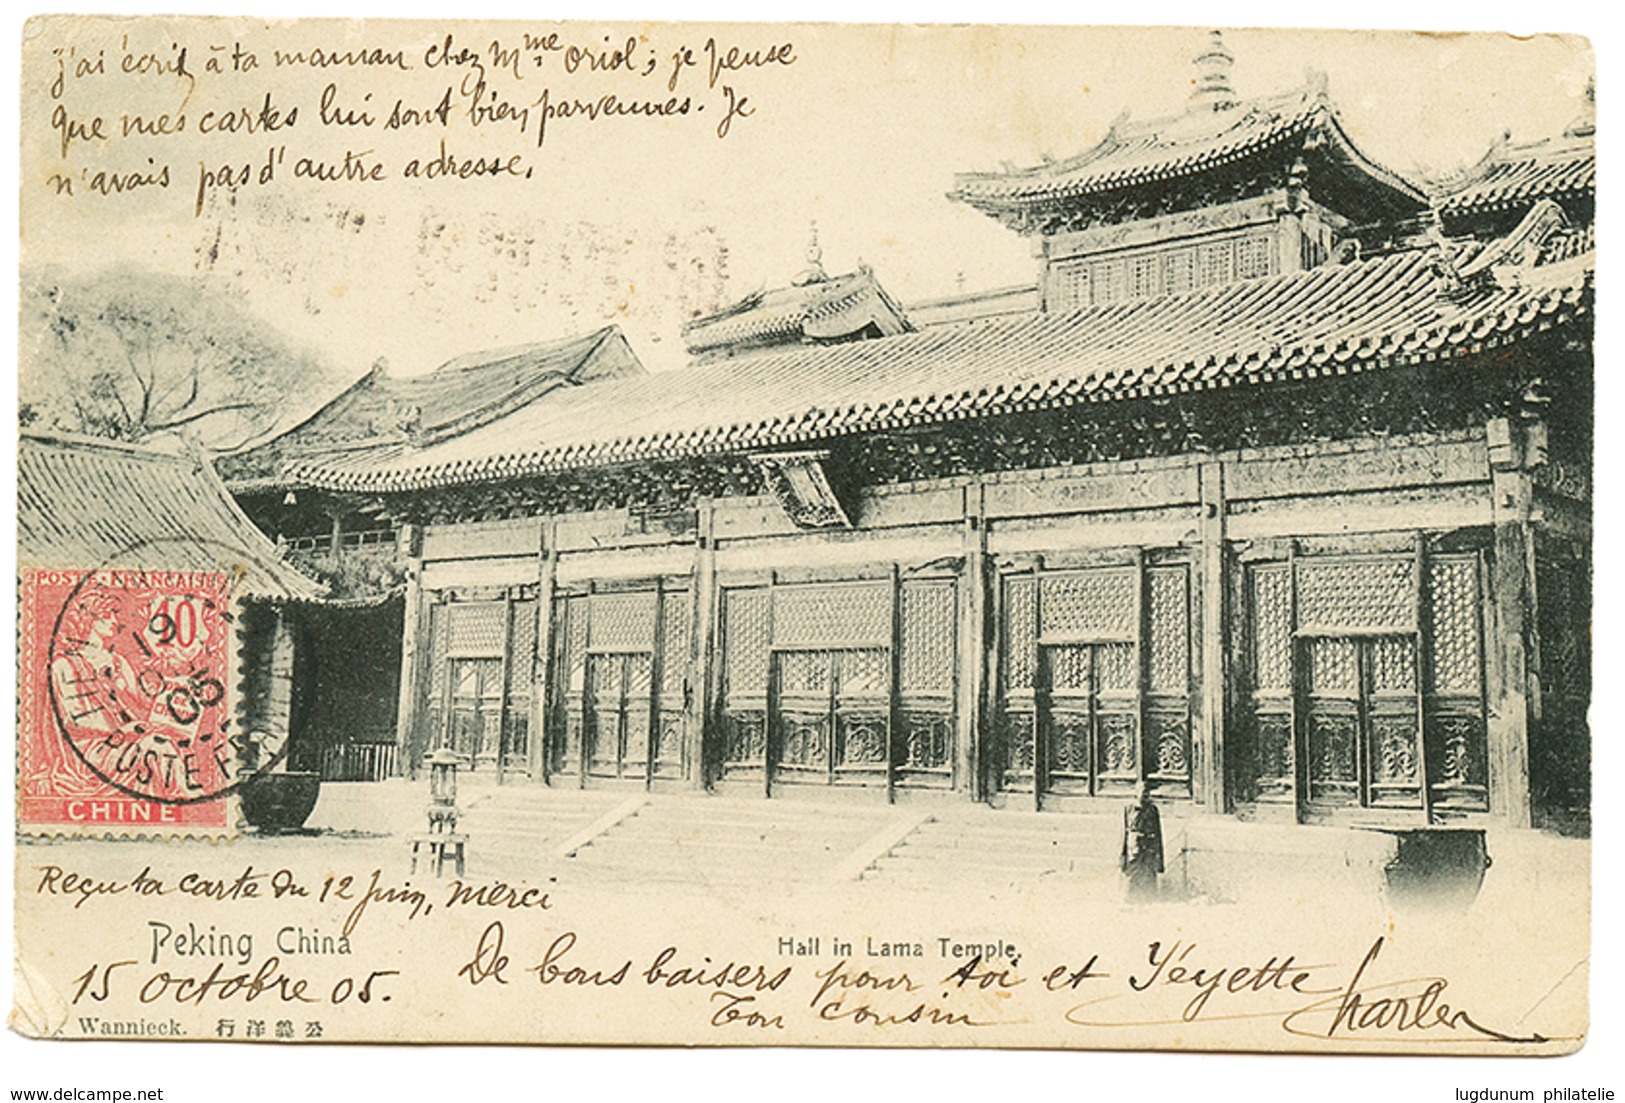 j'ai écrit à ta maman chez Mme Oriol ; je pense
que mes cartes lui sont bien parvenues. Je
n'avais pas d'autre adresse.
POSTE FRANÇAISE
10
TIEN
19
05
POSTE FR
CHINE
Reçu ta carte du 12 Juin, merci
Peking China
Hall in Lama Temple.
15 octobre 05.
De bons baisers pour toi et Yéyette
Ton cousin Charles
Wannieck. 行洋義公
www.delcampe.net
lugdunum philatelie